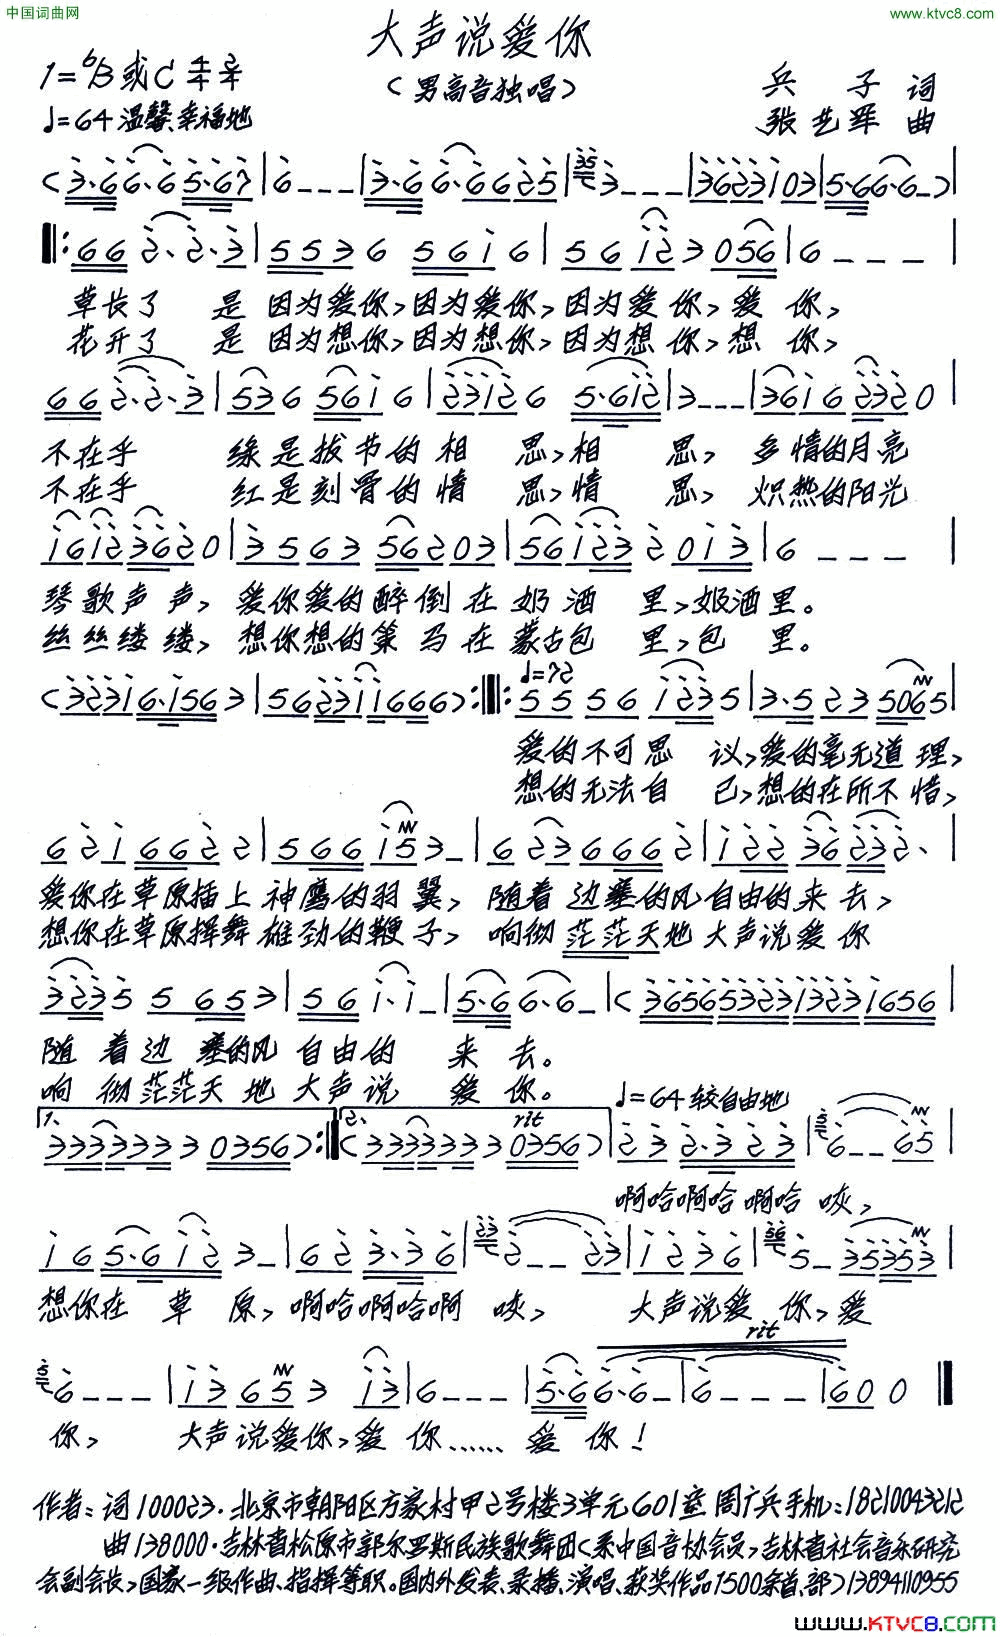 中国词曲网
www.ktvc8.com
大声说爱你
(男高音独唱)
1=♭B或C 4/4 2/4
♩=64 温馨、幸福地
兵 子 词
张艺军 曲
草长了 是 因为爱你,因为爱你,因为爱你,爱 你,
花开了 是 因为想你,因为想你,因为想你,想 你,
不在乎 缘是拔节的相 思,相 思, 多情的月亮
不在乎 红是刻骨的情 思,情 思, 炽热的阳光
琴歌声声, 爱你爱的醉倒在奶酒 里,奶酒里。
丝丝缕缕, 想你想的策马在蒙古包 里,包 里。
♩=72
爱的不可思 议,爱的毫无道理,
想的无法自 已,想的在所不惜,
爱你在草原插上神鹰的羽翼, 随着边塞的风自由的来去,
想你在草原挥舞雄劲的鞭子, 响彻茫茫天地大声说爱你
随着边塞的风自由的 来 去。
响彻茫茫天地大声说 爱 你。
1. 2. rit ♩=64 较自由地
啊哈啊哈啊哈 咴,
想你在 草 原, 啊哈啊哈啊 咴, 大声说爱 你,爱
rit
你, 大声说爱你,爱 你…… 爱 你!
作者:词100023·北京市朝阳区方家村甲2号楼3单元601室 周广兵手机:18210043212
曲138000·吉林省松原市郭尔罗斯民族歌舞团(系中国音协会员,吉林省社会音乐研究
会副会长,国家一级作曲、指挥等职。国内外发表、录播、演唱、获奖作品1500余首、部)13894110955
www.KTVC8.com